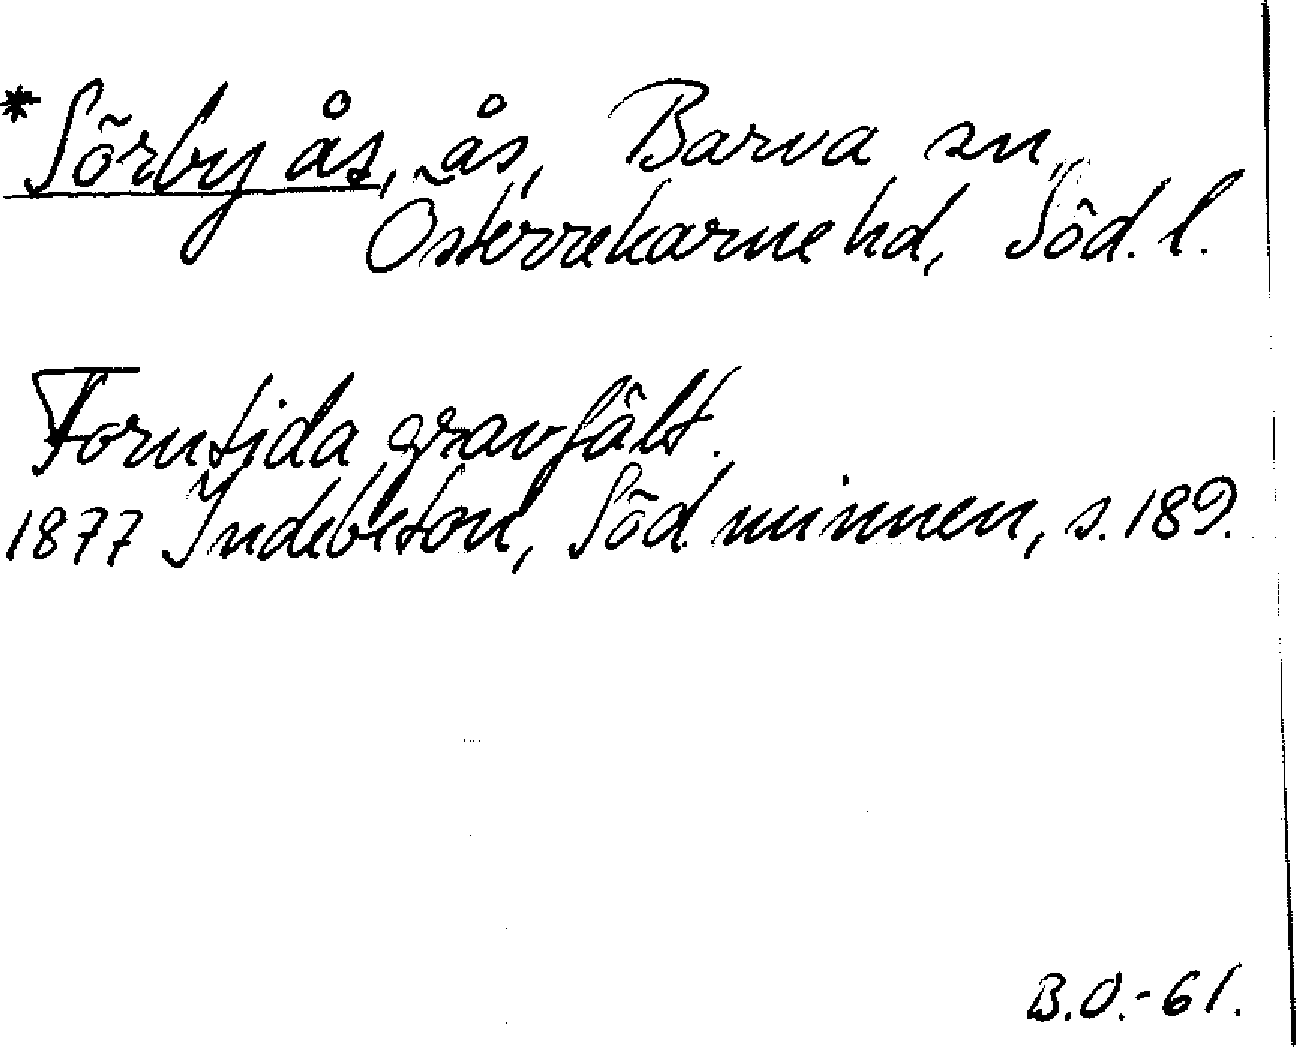 *Sörby ås, ås, Barva sn,
Österrekarne hd, Söd. l.
Forntida gravfält.
1877 Indebetou, Söd. minnen, s. 189.
B.O.-61.